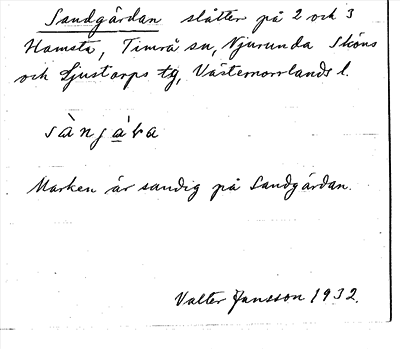 Sandgårdan slåtter på 2 och 3
Hamsta, Timrå sn, Njurunda Sköns
och Ljustorps tg, Västernorrlands l.
sàngáka
Marken är sandig på Sandgårdan.
Valter Jansson 1932.